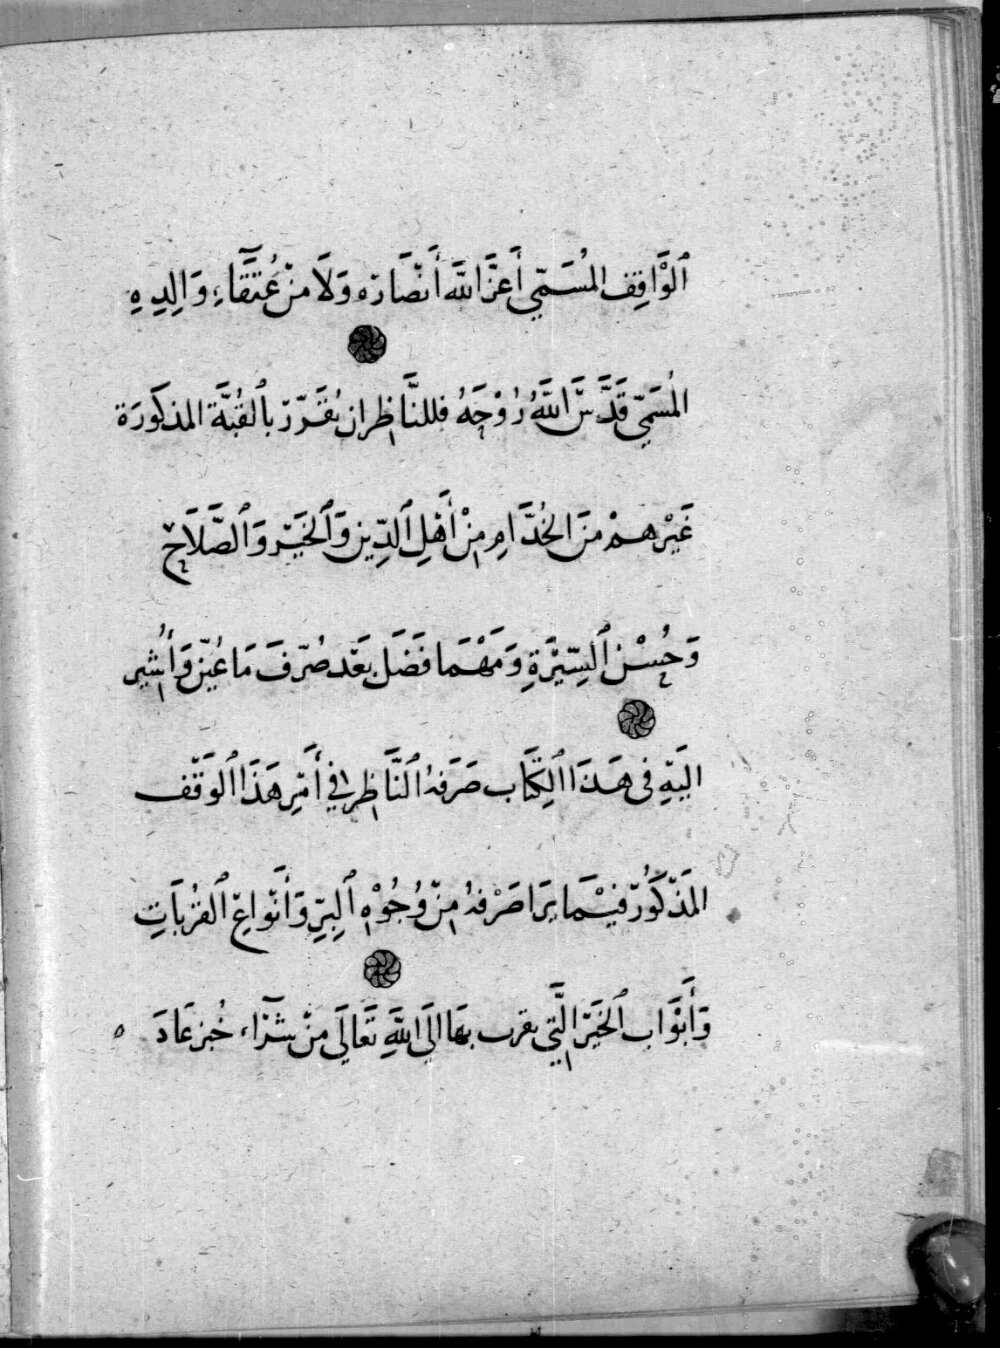 ٱلوَاقِف المُسَمّى أَعَزَّ اللَّهُ أَنْصَارَه وَلَا مِنْ عُتَقَآءِ وَالِدِهِ
المُسَمّى قَدَّسَ اللَّهُ رُوْحَهُ فللنَّاظِر ان يُقَرّرَ بٱلقُبَّة المذكورَة
غَيْرَهمْ مِنَ الخُدَّامِ مِنْ أَهْلِ ٱلدِّينِ وَٱلخَيْرِ وَٱلصَّلَاحِ
وَحُسْنِ ٱلسِّيْرَةِ وَمَهْمَا فَضَلَ بَعْد صُرْفَ مَا عُيِّنَ وَأُشِير
اليَهِ فى هَذَا ٱلكِتَاب صَرَفَهُ ٱلنَّاظِر فِي أَمْرِ هَذَا ٱلوَقْف
المَذْكُوْر فيْمَا يرَا صَرْفهُ مِنْ وُجُوْهِ ٱلبِرِّ وَأَنْوَاعِ ٱلقرُبَاتِ
وَأَبْوَاب ٱلخَيْر الَّتِي يقرب بهَا الَى اللَّهِ تَعَالَى مِنْ شَرَآء خُبز